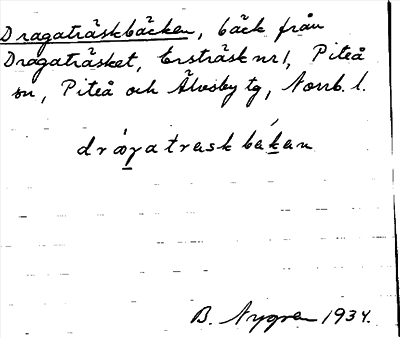 Dragaträskbäcken, bäck från
Dragaträsket, Ersträsk nr 1, Piteå
sn, Piteå och Älvsby tg, Norrb. l.
dragatraskbakan
B. Nygren 1934.